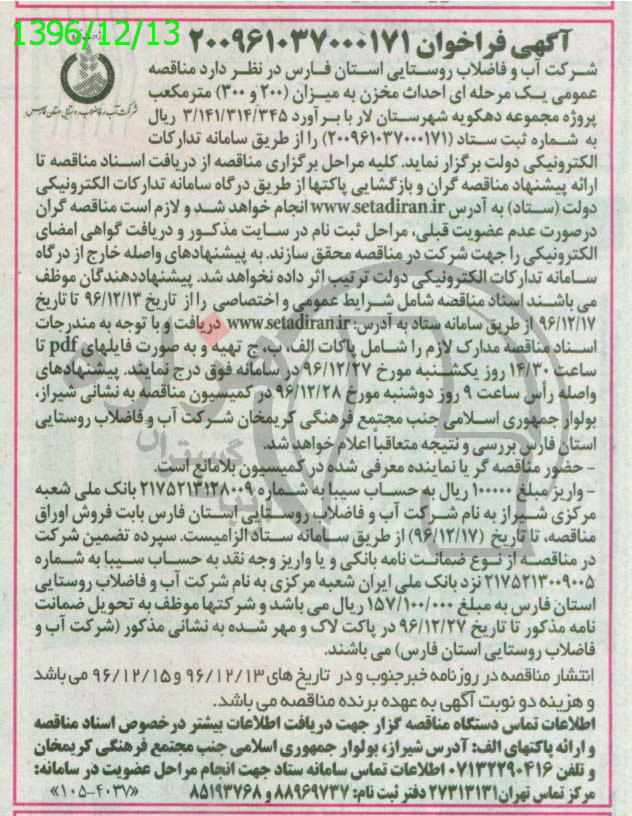 1396/12/13
آگهی فراخوان ۲۰۰۹۶۱۰۳۷۰۰۰۱۷۱
شرکت آب و فاضلاب روستایی استان فارس
شرکت آب و فاضلاب روستایی استان فارس در نظر دارد مناقصه
عمومی یک مرحله ای احداث مخزن به میزان (۲۰۰ و ۳۰۰) مترمکعب
پروژه مجموعه دهکویه شهرستان لار با برآورد ۳/۱۴۱/۳۱۴/۳۴۵ ریال
به شماره ثبت ستاد (۲۰۰۹۶۱۰۳۷۰۰۰۱۷۱) را از طریق سامانه تدارکات
الکترونیکی دولت برگزار نماید. کلیه مراحل برگزاری مناقصه از دریافت اسناد مناقصه تا
ارائه پیشنهاد مناقصه گران و بازگشایی پاکتها از طریق درگاه سامانه تدارکات الکترونیکی
دولت (ستاد) به آدرس www.setadiran.ir انجام خواهد شد و لازم است مناقصه گران
درصورت عدم عضویت قبلی، مراحل ثبت نام در سایت مذکور و دریافت گواهی امضای
الکترونیکی را جهت شرکت در مناقصه محقق سازند. به پیشنهادهای واصله خارج از درگاه
سامانه تدارکات الکترونیکی دولت ترتیب اثر داده نخواهد شد. پیشنهاددهندگان موظف
می باشند اسناد مناقصه شامل شرایط عمومی و اختصاصی را از تاریخ ۹۶/۱۲/۱۳ تا تاریخ
۹۶/۱۲/۱۷ از طریق سامانه ستاد به آدرس: www.setadiran.ir دریافت و با توجه به مندرجات
اسناد مناقصه مدارک لازم را شامل پاکات الف، ب، ج تهیه و به صورت فایلهای pdf تا
ساعت ۱۴/۳۰ روز یکشنبه مورخ ۹۶/۱۲/۲۷ در سامانه فوق درج نمایند. پیشنهادهای
واصله رأس ساعت ۹ روز دوشنبه مورخ ۹۶/۱۲/۲۸ در کمیسیون مناقصه به نشانی شیراز،
بولوار جمهوری اسلامی جنب مجتمع فرهنگی کریمخان شرکت آب و فاضلاب روستایی
استان فارس بررسی و نتیجه متعاقبا اعلام خواهد شد.
- حضور مناقصه گر یا نماینده معرفی شده در کمیسیون بلامانع است.
- واریز مبلغ ۱۰۰۰۰۰ ریال به حساب سیبا به شماره ۲۱۷۵۲۱۳۱۲۸۰۰۹ بانک ملی شعبه
مرکزی شیراز به نام شرکت آب و فاضلاب روستایی استان فارس بابت فروش اوراق
مناقصه، تا تاریخ (۹۶/۱۲/۱۷) از طریق سامانه ستاد الزامیست. سپرده تضمین شرکت
در مناقصه از نوع ضمانت نامه بانکی و یا واریز وجه نقد به حساب سیبا به شماره
۲۱۷۵۲۱۳۰۰۹۰۰۵ نزد بانک ملی ایران شعبه مرکزی به نام شرکت آب و فاضلاب روستایی
استان فارس به مبلغ ۱۵۷/۱۰۰/۰۰۰ ریال می باشد و شرکتها موظف به تحویل ضمانت
نامه مذکور تا تاریخ ۹۶/۱۲/۲۷ در پاکت لاک و مهر شده به نشانی مذکور (شرکت آب و
فاضلاب روستایی استان فارس) می باشند.
انتشار مناقصه در روزنامه خبرجنوب و در تاریخ های ۹۶/۱۲/۱۳ و ۹۶/۱۲/۱۵ می باشد
و هزینه دو نوبت آگهی به عهده برنده مناقصه می باشد.
اطلاعات تماس دستگاه مناقصه گزار جهت دریافت اطلاعات بیشتر درخصوص اسناد مناقصه
و ارائه پاکتهای الف: آدرس شیراز، بولوار جمهوری اسلامی جنب مجتمع فرهنگی کریمخان
و تلفن ۰۷۱۳۲۲۹۰۴۱۶ اطلاعات تماس سامانه ستاد جهت انجام مراحل عضویت در سامانه:
مرکز تماس تهران ۲۷۳۱۳۱۳۱ دفتر ثبت نام: ۸۸۹۶۹۷۳۷ و ۸۵۱۹۳۷۶۸ «۱۰۵-۴۰۳۷»